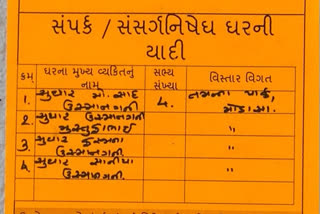 સંપર્ક / સંસર્ગનિષેધ ઘરની
યાદી
ક્રમ ઘરના મુખ્ય વ્યકિતનું નામ સભ્ય સંખ્યા વિસ્તાર વિગત
1. સુથાર મો. સાદ ઉસ્માનગની ૪. નગમા પાર્ક, મોડાસા.
2 સુથાર ઉસ્માનગની "
3 સુથાર ઉસ્માનગની "
4 સુથાર સાનીયા ઉસ્માનગની "